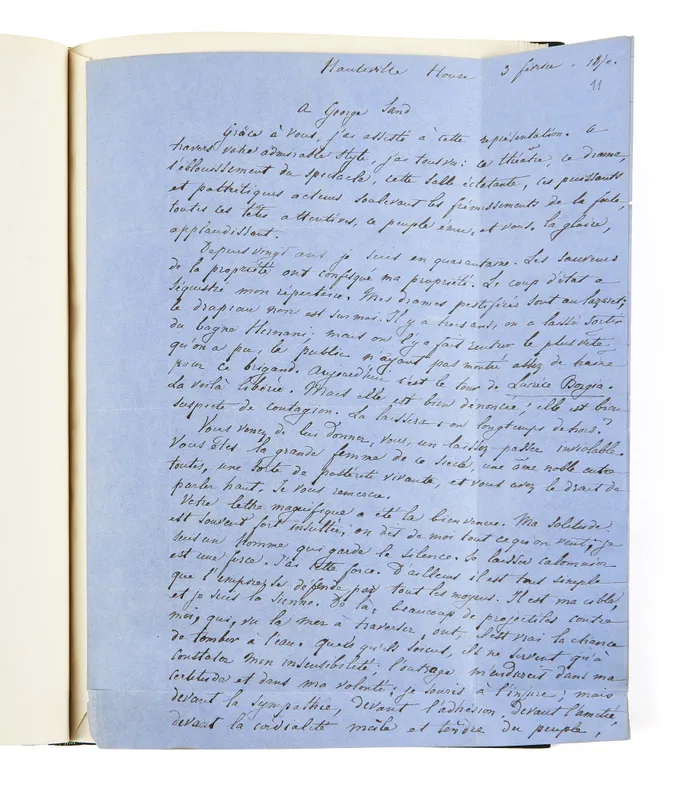 Hauteville House 3 février. 1870.
11
A George Sand
Grâce à vous, j'ai assisté à cette représentation. A
travers votre admirable style, j'ai tout vu : ce théâtre, ce drame,
l'éblouissement du spectacle, cette salle éclatante, ces puissants
et pathétiques acteurs soulevant les frémissements de la foule,
toutes ces têtes attentives, ce peuple ému, et vous, la gloire,
applaudissant.
Depuis vingt ans je suis en quarantaine. Les sauveurs
de la propriété ont confisqué ma propriété. Le coup d'état a
séquestré mon répertoire. Mes drames pestiférés sont au lazaret ;
le drapeau noir est sur moi. Il y a trois ans, on a laissé sortir
du bagne Hernani ; mais on l'y a fait rentrer le plus vite
qu'on a pu, le public n'ayant pas montré assez de haine
pour ce brigand. Aujourd'hui c'est le tour de Lucrèce Borgia.
La voilà libérée. Mais elle est bien dénoncée ; elle est bien
suspecte de contagion. La laissera-t-on longtemps dehors ?
Vous venez de lui donner, vous, un laissez-passer inviolable.
Vous êtes la grande femme de ce siècle, une âme noble entre
toutes, une sorte de postérité vivante, et vous avez le droit de
parler haut. Je vous remercie.
Votre lettre magnifique a été la bienvenue. Ma solitude
est souvent fort insultée ; on dit de moi tout ce qu'on veut ; je
suis un homme qui garde le silence. Se laisser calomnier
est une force. J'ai cette force. D'ailleurs il est tout simple
que l'empire se défende par tous les moyens. Il est ma cible,
et je suis la sienne. De là, beaucoup de projectiles contre
moi, qui, vu la mer à traverser, ont, il est vrai la chance
de tomber à l'eau. Quels qu'ils soient, ils ne servent qu'à
constater mon insensibilité ; l'outrage m'endurcit dans ma
certitude et dans ma volonté ; je souris à l'injure ; mais
devant la sympathie, devant l'adhésion, devant l'amitié,
devant la cordialité mâle et tendre du peuple,